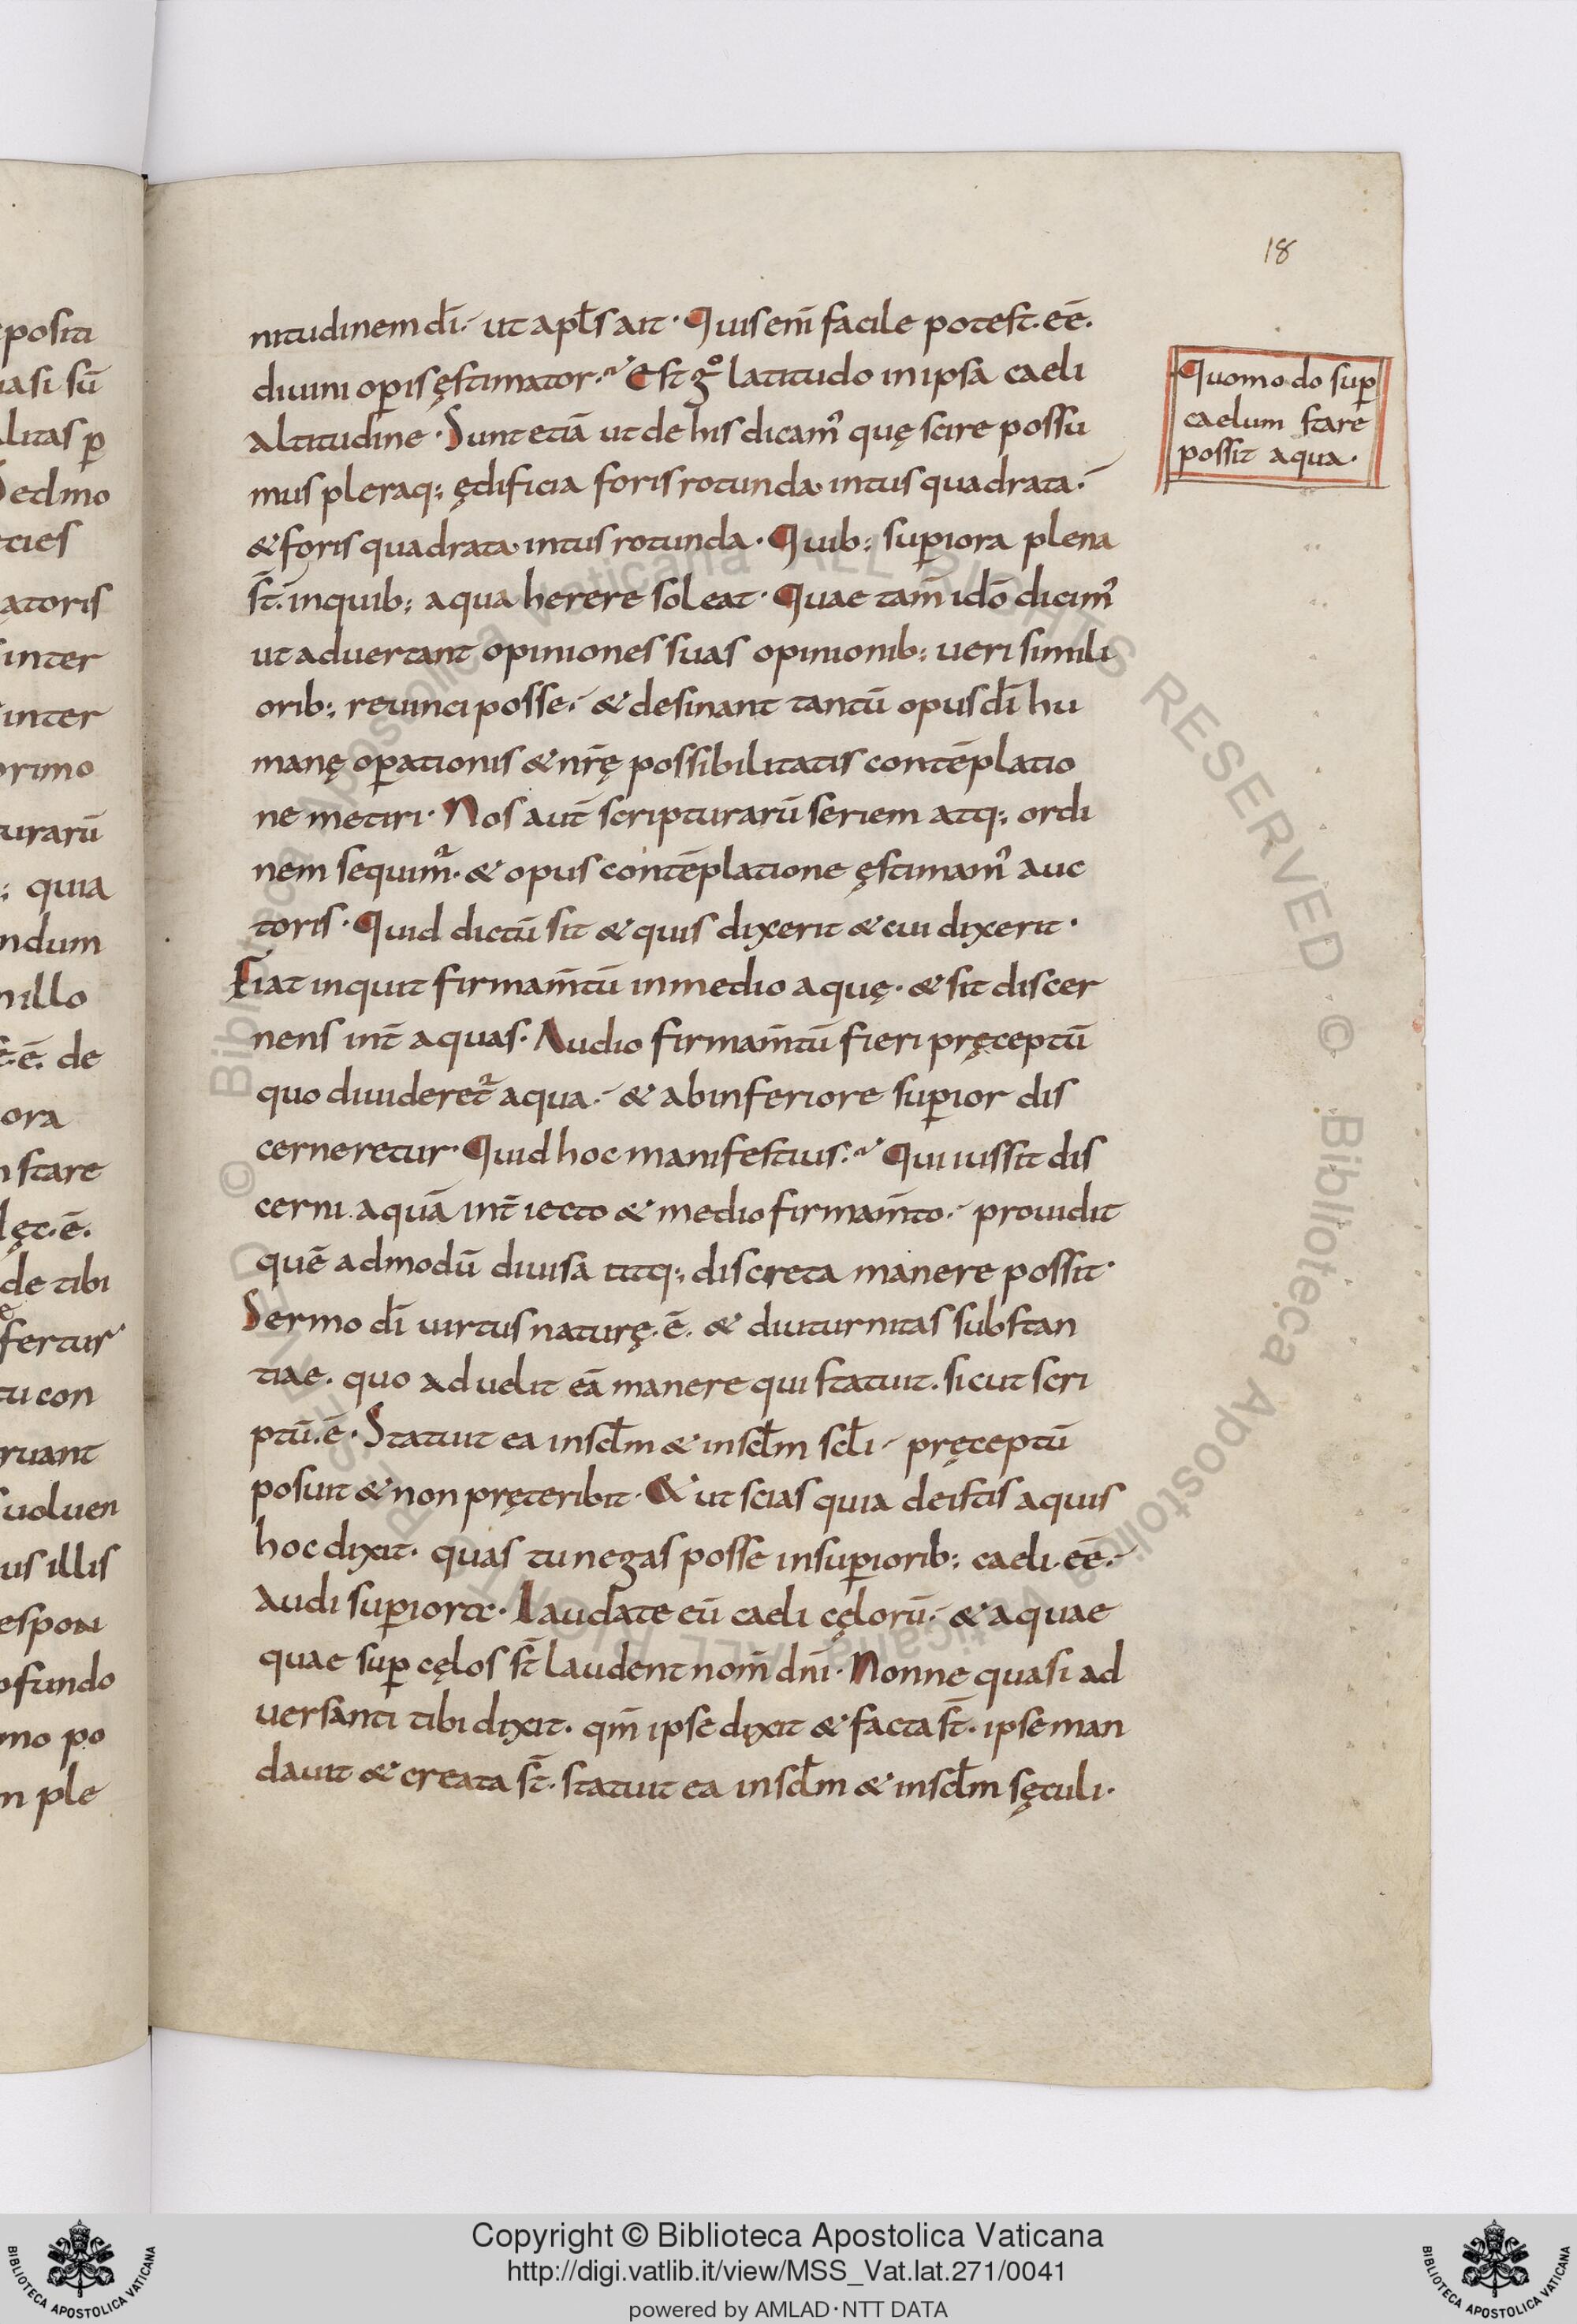 18
nitudinem dī· ut apl̄s ait· Quis enī facile potest·eē·
diuini oꝑis ęstimator·? Est gͦ latitudo in ipsa caeli
altitudine· Sunt etiā ut de his dicam᾽ quę scire possu
mus pleraq; ędificia foris rotunda· intus quadrata·
& foris quadrata· intus rotunda· Quib; suꝑiora plena
st̄· in quib; aqua herere soleat· Quae tam̄ idō dicim᾽
ut aduertant opiniones suas opinionib; ueri simili
orib; reuinci posse· & desinant tantū opus dī hu
manę oꝑationis & nr̄ę possibilitatis contēplatio
ne metiri· Nos aut̄ scripturarū seriem atq; ordi
nem sequim᷑· & opus contēplatione ęstimam᾽ auc
toris· Quid dictū sit & quis dixerit & cui dixerit·
Fiat inquit firmam̄tū in medio aquę· & sit discer
nens int̄ aquas· Audio firmam̄tū fieri pręceptū
quo diuideret᷑ aqua· & ab inferiore suꝑior dis
cerneretur· Quid hoc manifestius·? Qui iussit dis
cerni aquā int̄ iecto & medio firmam̄to· prouidit
quē admodū diuisa titq; discreta manere possit·
Sermo dī uirtus naturę·ē· & diuturnitas substan
tiae· quo ad uelit eā manere qui statuit· sicut scri
ptū·ē· Statuit ea in scl̄m & in scl̄m scl̄i· pręceptū
posuit & non pręteribit· & ut scias quia de istis aquis
hoc dixit· quas tu negas posse in suꝑiorib; caeli·eē·
audi suꝑiora· Laudate eū caeli cęlorū· & aquae
quae suꝑ cęlos st̄ laudent nom̄ dn̄i· Nonne quasi ad
uersanti tibi dixit· qm̄ ipse dixit & facta st̄· ipse man
dauit & creata st̄· statuit ea in scl̄m & in scl̄m sęculi·
Quomodo suꝑ
caelum stare
possit aqua·
Copyright © Biblioteca Apostolica Vaticana
http://digi.vatlib.it/view/MSS_Vat.lat.271/0041
powered by AMLAD·NTT DATA
BIBLIOTECA APOSTOLICA VATICANA
BIBLIOTECA APOSTOLICA VATICANA